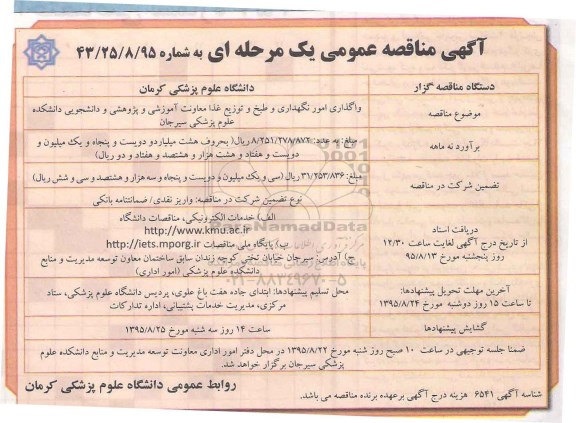 آگهی مناقصه عمومی یک مرحله ای به شماره ۴۳/۲۵/۸/۹۵
دستگاه مناقصه گزار
دانشگاه علوم پزشکی کرمان
موضوع مناقصه
واگذاری امور نگهداری و طبخ و توزیع غذا معاونت آموزشی و پژوهشی و دانشجویی دانشکده
علوم پزشکی سیرجان
برآورد نه ماهه
مبلغ: به عدد: ۸/۲۵۱/۲۷۸/۸۷۲ ریال( بحروف هشت میلیارد و دویست و پنجاه و یک میلیون و
دویست و هفتاد و هشت هزار و هشتصد و هفتاد و دو ریال)
تضمین شرکت در مناقصه
مبلغ: ۳۱/۲۵۳/۸۳۶ ریال (سی و یک میلیون و دویست و پنجاه و سه هزار و هشتصد و سی و شش ریال)
نوع تضمین شرکت در مناقصه: واریز نقدی/ ضمانتنامه بانکی
دریافت اسناد
از تاریخ درج آگهی لغایت ساعت ۱۲/۳۰
روز پنجشنبه مورخ ۹۵/۸/۱۳
الف) خدمات الکترونیکی، مناقصات دانشگاه
http://www.kmu.ac.ir
ب) پایگاه ملی مناقصات http://iets.mporg.ir
ج) آدرس: سیرجان خیابان تختی کوچه زندان سابق ساختمان معاون توسعه مدیریت و منابع
دانشکده علوم پزشکی (امور اداری)
آخرین مهلت تحویل پیشنهادها:
تا ساعت ۱۵ روز دوشنبه مورخ ۱۳۹۵/۸/۲۴
محل تسلیم پیشنهادها: ابتدای جاده هفت باغ علوی، پردیس دانشگاه علوم پزشکی، ستاد
مرکزی، مدیریت خدمات پشتیبانی، اداره تدارکات
گشایش پیشنهادها
ساعت ۱۴ روز سه شنبه مورخ ۱۳۹۵/۸/۲۵
ضمنا جلسه توجیهی در ساعت ۱۰ صبح روز شنبه مورخ ۱۳۹۵/۸/۲۲ در محل دفتر امور اداری معاونت توسعه مدیریت و منابع دانشکده علوم
پزشکی سیرجان برگزار خواهد شد.
شناسه آگهی ۶۵۴۱ هزینه درج آگهی برعهده برنده مناقصه می باشد.
روابط عمومی دانشگاه علوم پزشکی کرمان
ParsNamadData
۰۲۱-۸۸۳۴۹۶۷۰-۵